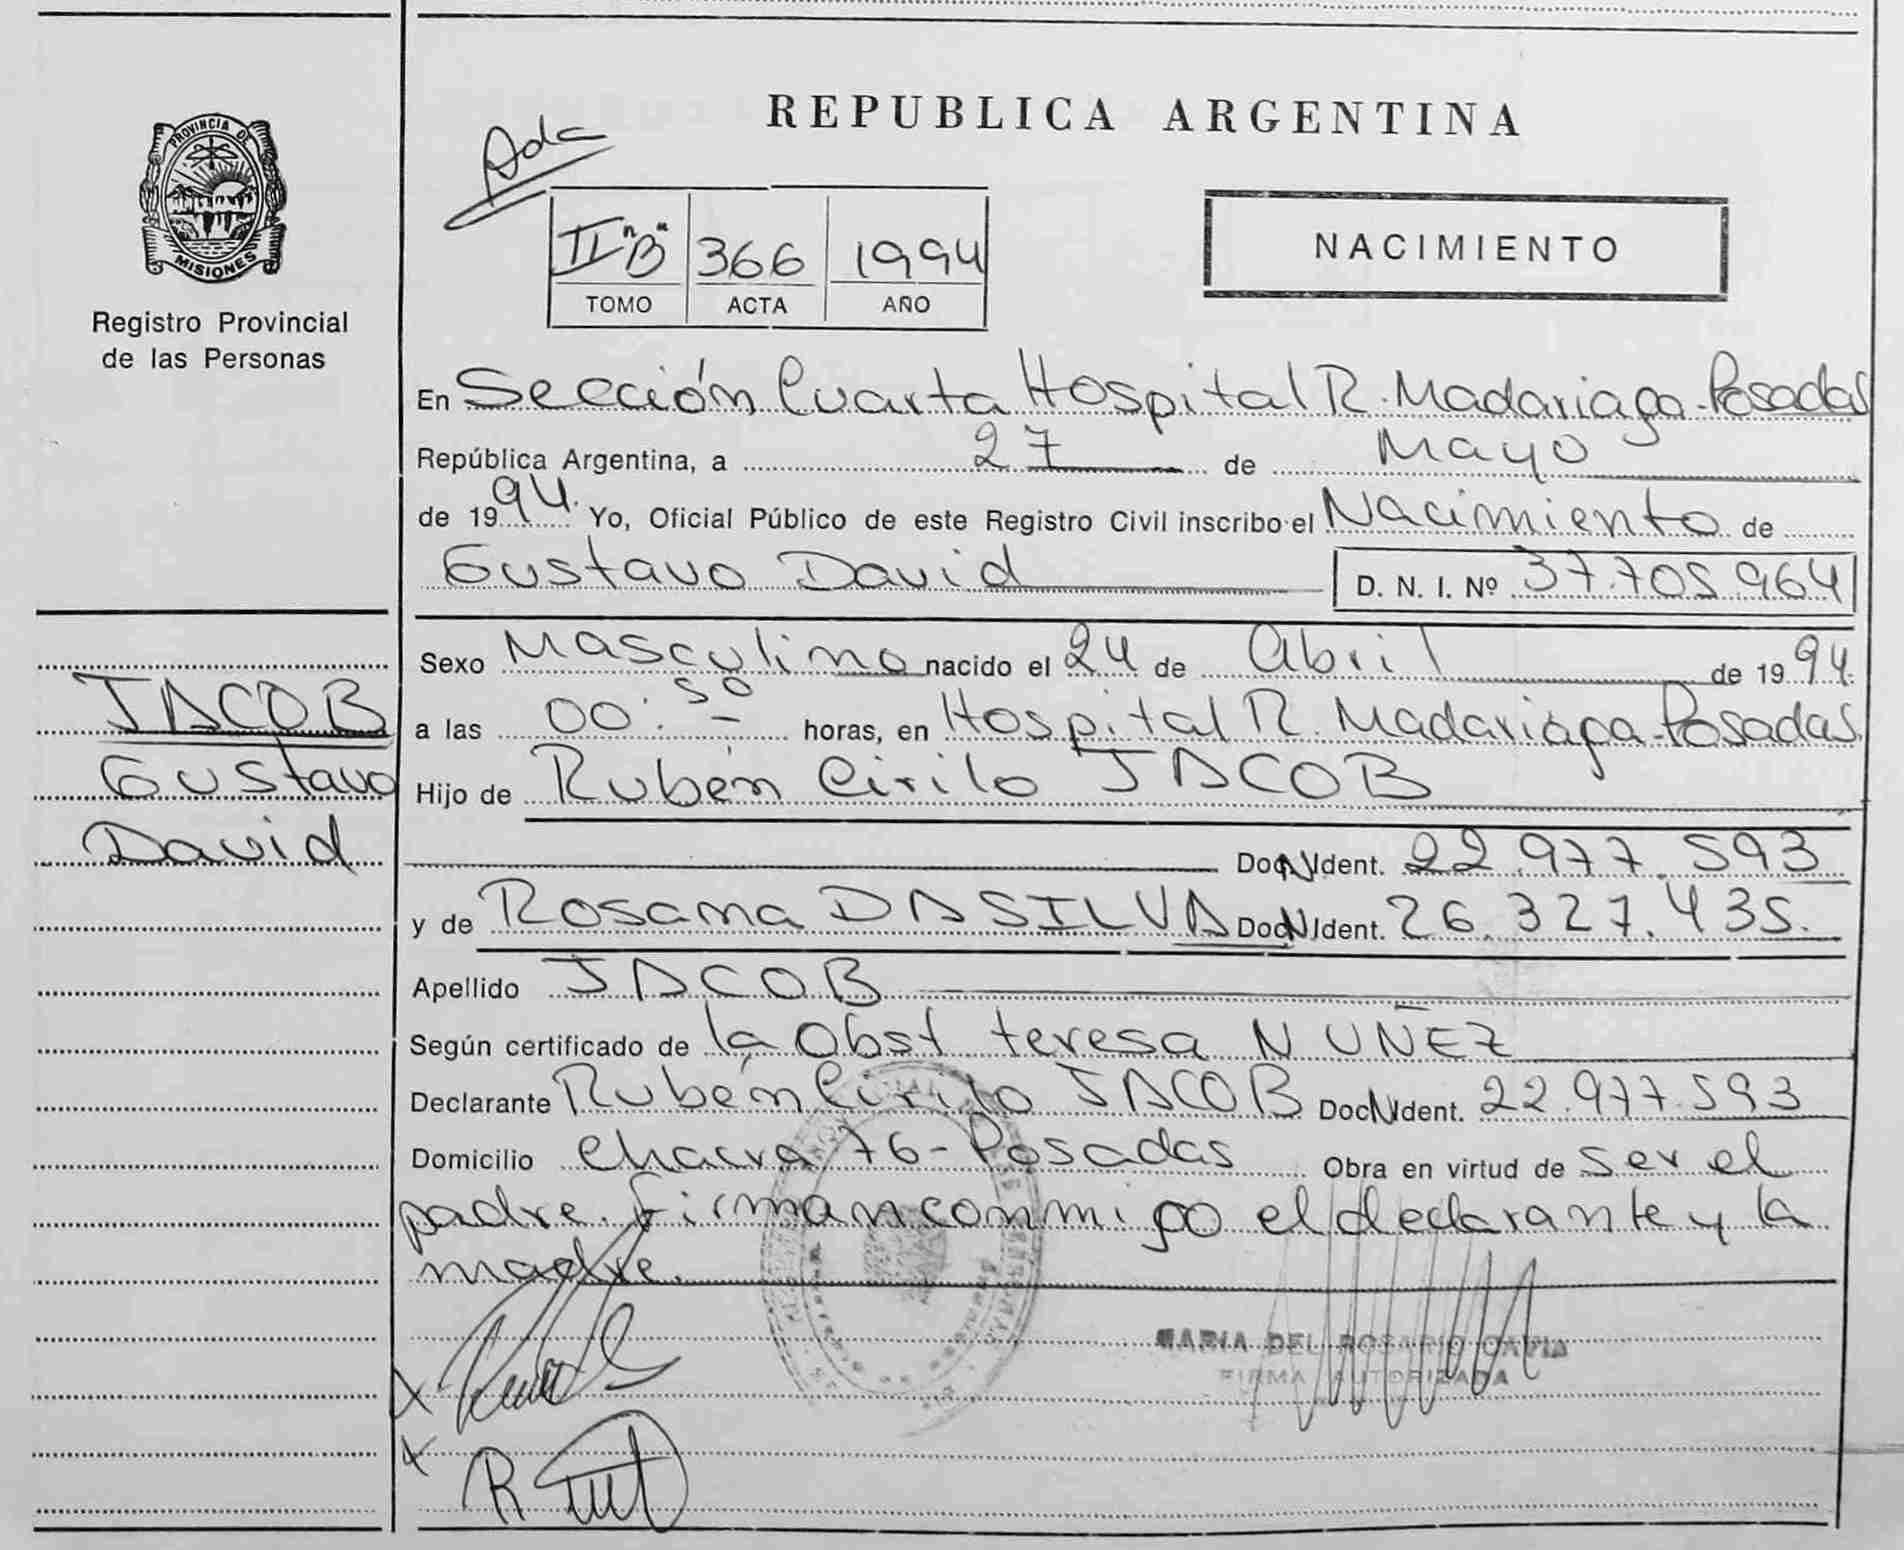 PROVINCIA DE
MISIONES
Registro Provincial
de las Personas
JACOB
Gustavo
David
REPUBLICA ARGENTINA
Ada
II "B" 366 1994
TOMO ACTA AÑO
NACIMIENTO
En Sección Cuarta Hospital R. Madariaga-Posadas
República Argentina, a 27 de Mayo
de 1994. Yo, Oficial Público de este Registro Civil inscribo el Nacimiento de
Gustavo David D. N. I. Nº 37.705.964
Sexo Masculino nacido el 24 de Abril de 1994.
a las 00:50 horas, en Hospital R. Madariaga-Posadas.
Hijo de Rubén Cirilo JACOB
Doc.N.Ident. 22.977.593
y de Rosana DA SILVA Doc.N.Ident. 26.327.435.
Apellido JACOB
Según certificado de la Obst teresa NUÑEZ
Declarante Rubén Cirilo JACOB Doc.N.Ident. 22.977.593
Domicilio Chacra 76-Posadas Obra en virtud de ser el
padre. Firman conmigo el declarante y la
madre.
MARIA DEL ROSARIO CAVIA
FIRMA AUTORIZADA